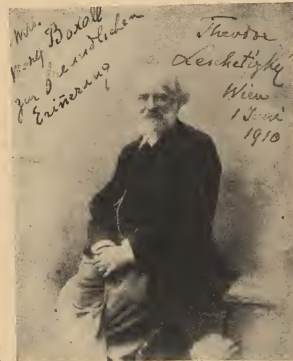 Mrs.
Mary Boxall
zur freundlichen
Erinnerung
Theodor
Leschetizky
Wien
1 Juni
1910